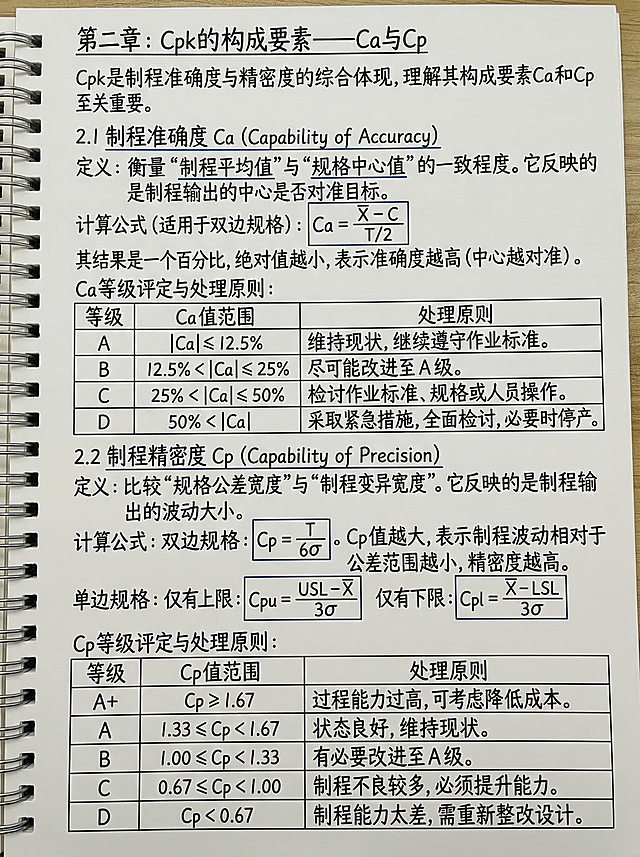 第二章：Cpk的构成要素——Ca与Cp
Cpk是制程准确度与精密度的综合体现，理解其构成要素Ca和Cp
至关重要。
2.1 制程准确度 Ca (Capability of Accuracy)
定义：衡量“制程平均值”与“规格中心值”的一致程度。它反映的
是制程输出的中心是否对准目标。
计算公式（适用于双边规格）：Ca = (X̄ − C) / (T/2)
其结果是一个百分比，绝对值越小，表示准确度越高（中心越对准）。
Ca等级评定与处理原则：
等级 Ca值范围 处理原则
A |Ca| ≤ 12.5% 维持现状，继续遵守作业标准。
B 12.5% < |Ca| ≤ 25% 尽可能改进至A级。
C 25% < |Ca| ≤ 50% 检讨作业标准、规格或人员操作。
D 50% < |Ca| 采取紧急措施，全面检讨，必要时停产。
2.2 制程精密度 Cp (Capability of Precision)
定义：比较“规格公差宽度”与“制程变异宽度”。它反映的是制程输
出的波动大小。
计算公式：双边规格：Cp = T / 6σ。Cp值越大，表示制程波动相对于
公差范围越小，精密度越高。
单边规格：仅有上限：Cpu = (USL − X̄) / 3σ 仅有下限：Cpl = (X̄ − LSL) / 3σ
Cp等级评定与处理原则：
等级 Cp值范围 处理原则
A+ Cp ≥ 1.67 过程能力过高，可考虑降低成本。
A 1.33 ≤ Cp < 1.67 状态良好，维持现状。
B 1.00 ≤ Cp < 1.33 有必要改进至A级。
C 0.67 ≤ Cp < 1.00 制程不良较多，必须提升能力。
D Cp < 0.67 制程能力太差，需重新整改设计。